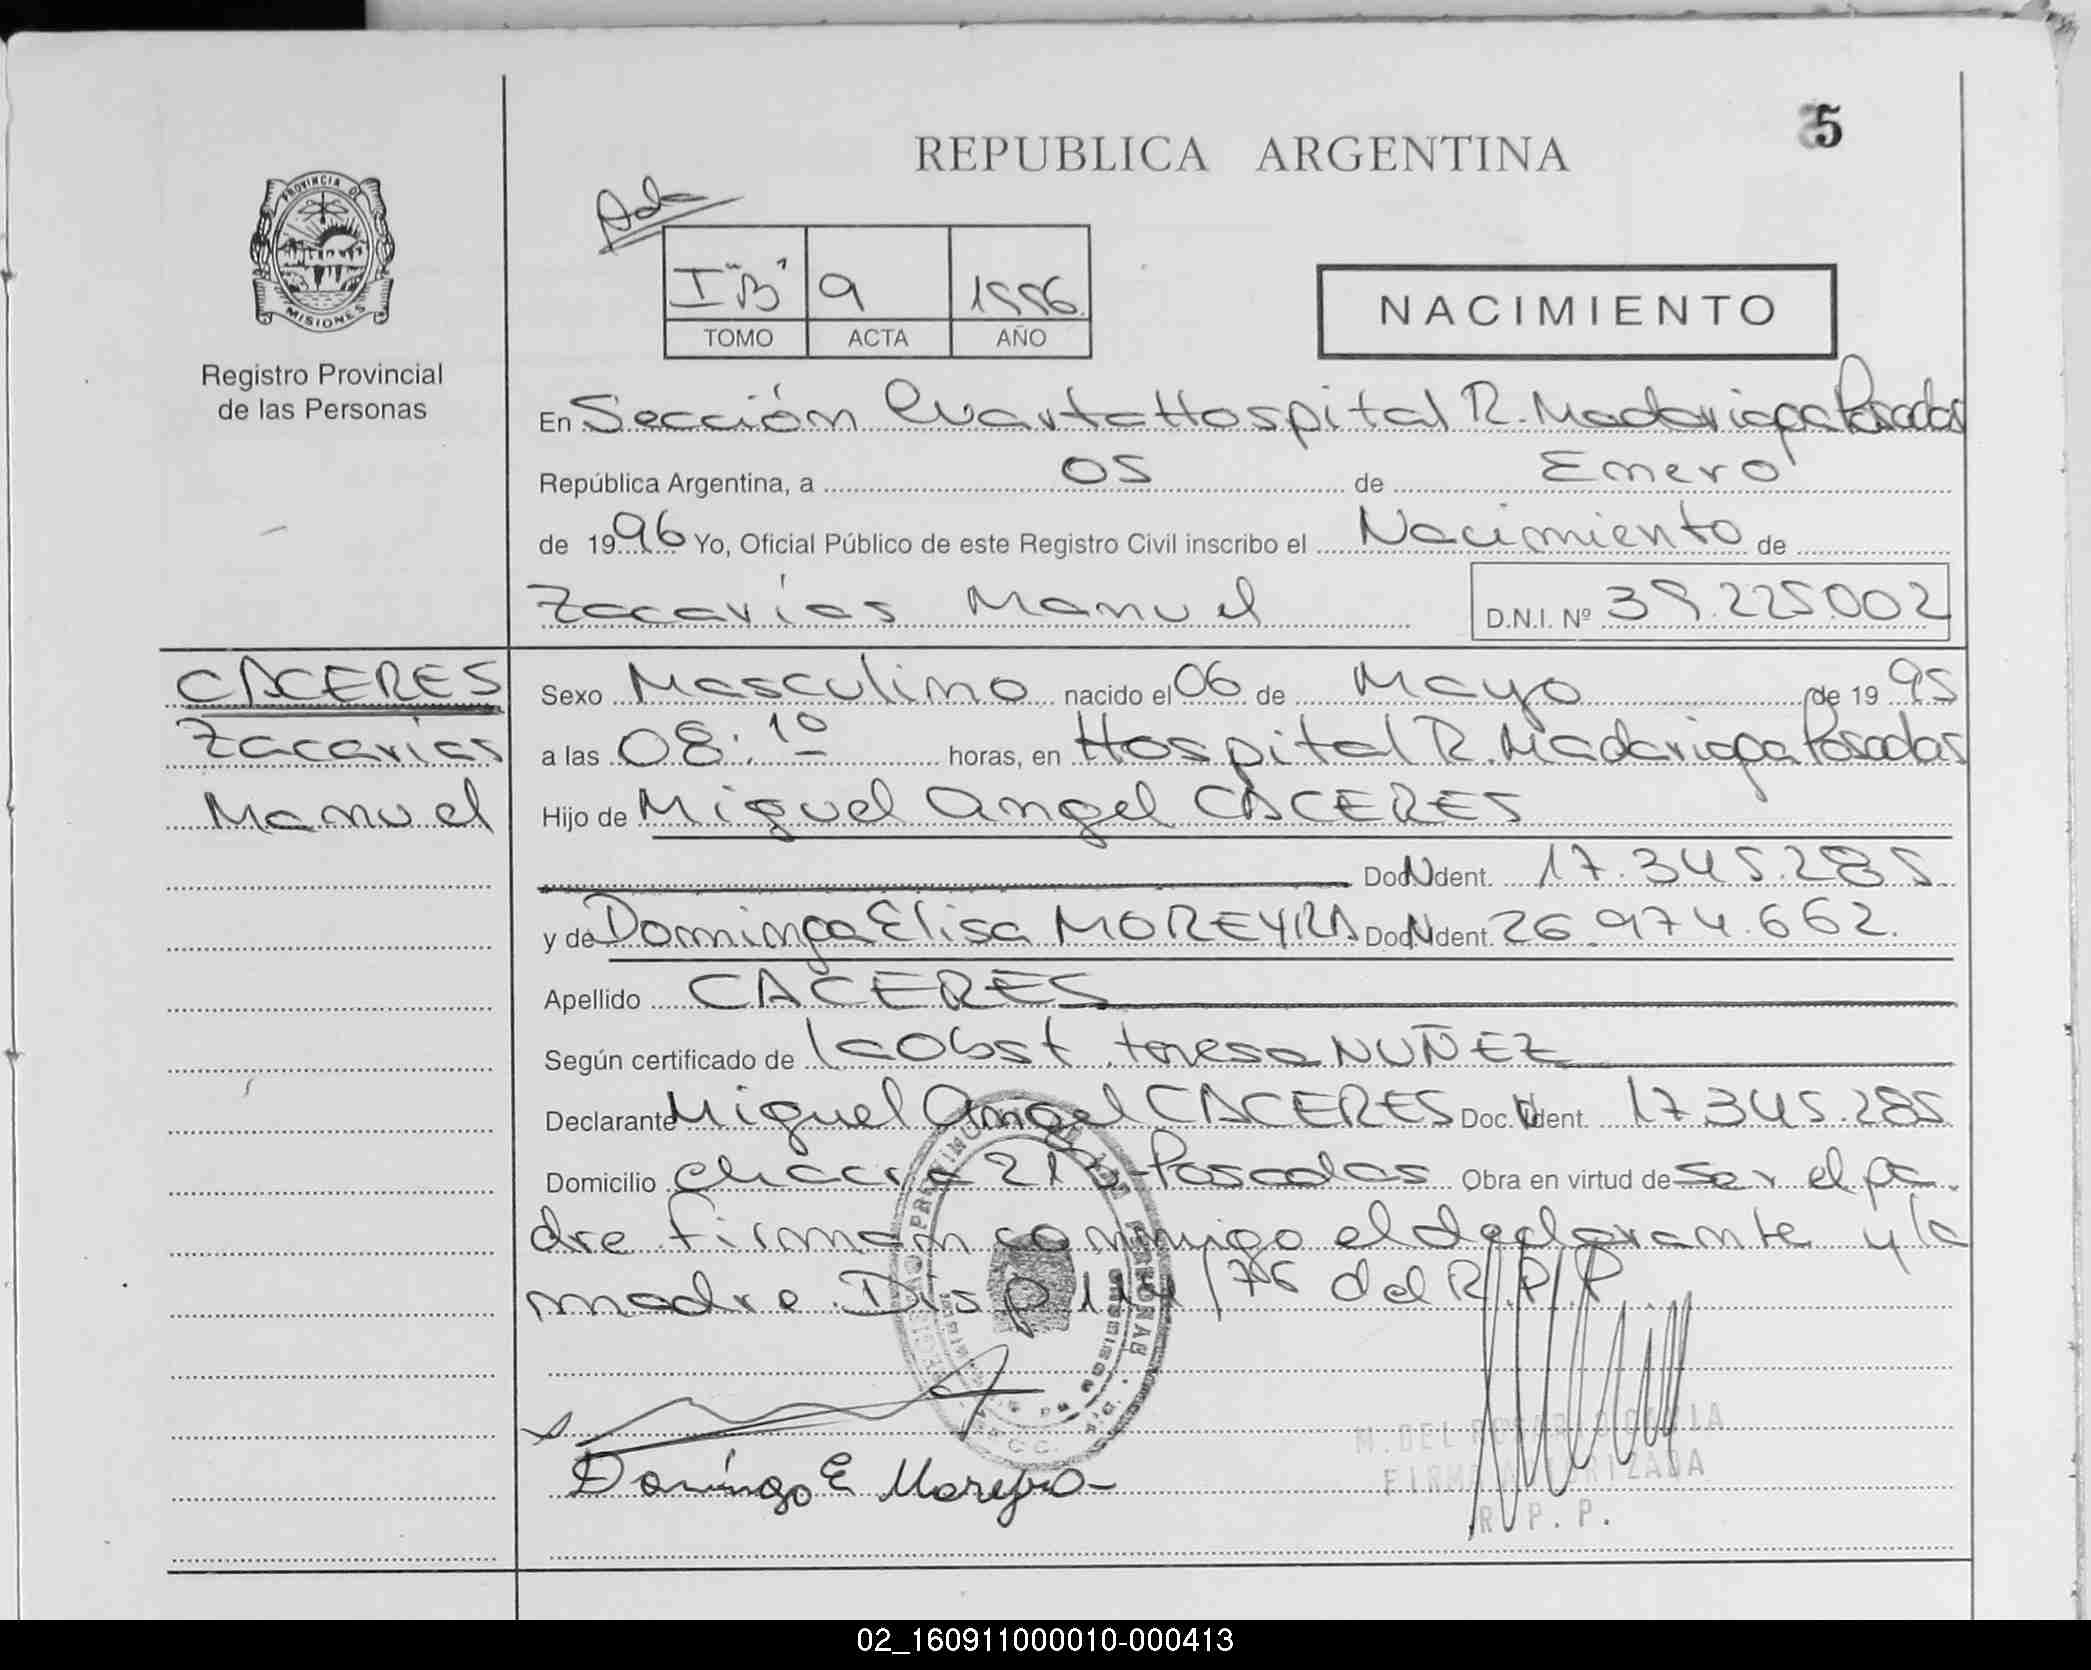 5
REPUBLICA ARGENTINA
Ada
PROVINCIA DE
MISIONES
I "B" 9 1996
TOMO ACTA AÑO
NACIMIENTO
Registro Provincial
de las Personas
En Sección Cuarta Hospital R. Madariaga Posadas
República Argentina, a 05 de Enero
de 1996 Yo, Oficial Público de este Registro Civil inscribo el Nacimiento de
Zacarías Manuel D.N.I. Nº 39.225.002
CACERES
Zacarías
Manuel
Sexo Masculino nacido el 06 de Mayo de 1995
a las 08:10 horas, en Hospital R. Madariaga Posadas
Hijo de Miguel Angel CACERES
Doc N Ident. 17.345.285
y de Dominga Elisa MOREYRA Doc N Ident. 26.974.662.
Apellido CACERES
Según certificado de la Obst. teresa NUÑEZ
Declarante Miguel Angel CACERES Doc. N Ident. 17.345.285
Domicilio chacra 213-Posadas Obra en virtud de ser el pa-
dre firman conmigo el declarante y la
madre. Disp 114/76 del R.P.P
Dominga E Moreyra-
M. DEL ROSARIO
FIRMA AUTORIZADA
R.P.P.
02_160911000010-000413